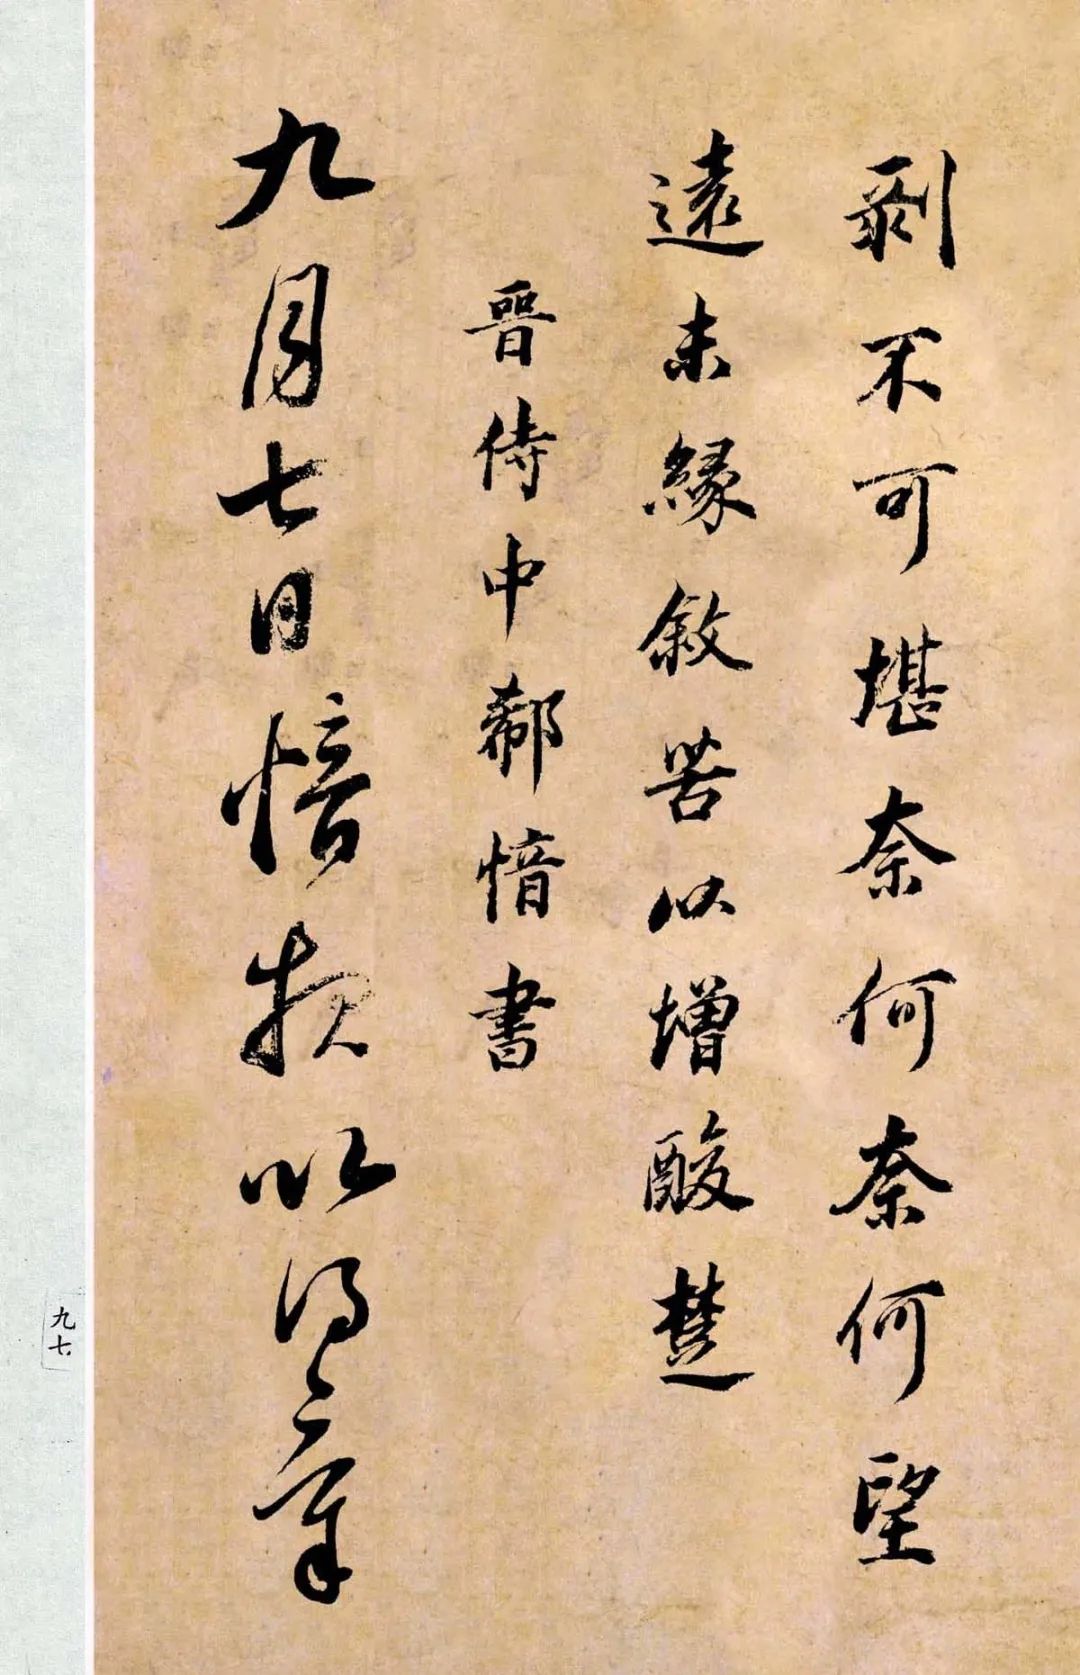 剥不可堪奈何奈何望
遠未緣敘苦以增酸楚
晉侍中郗愔書
九月七日愔報比得章
九七